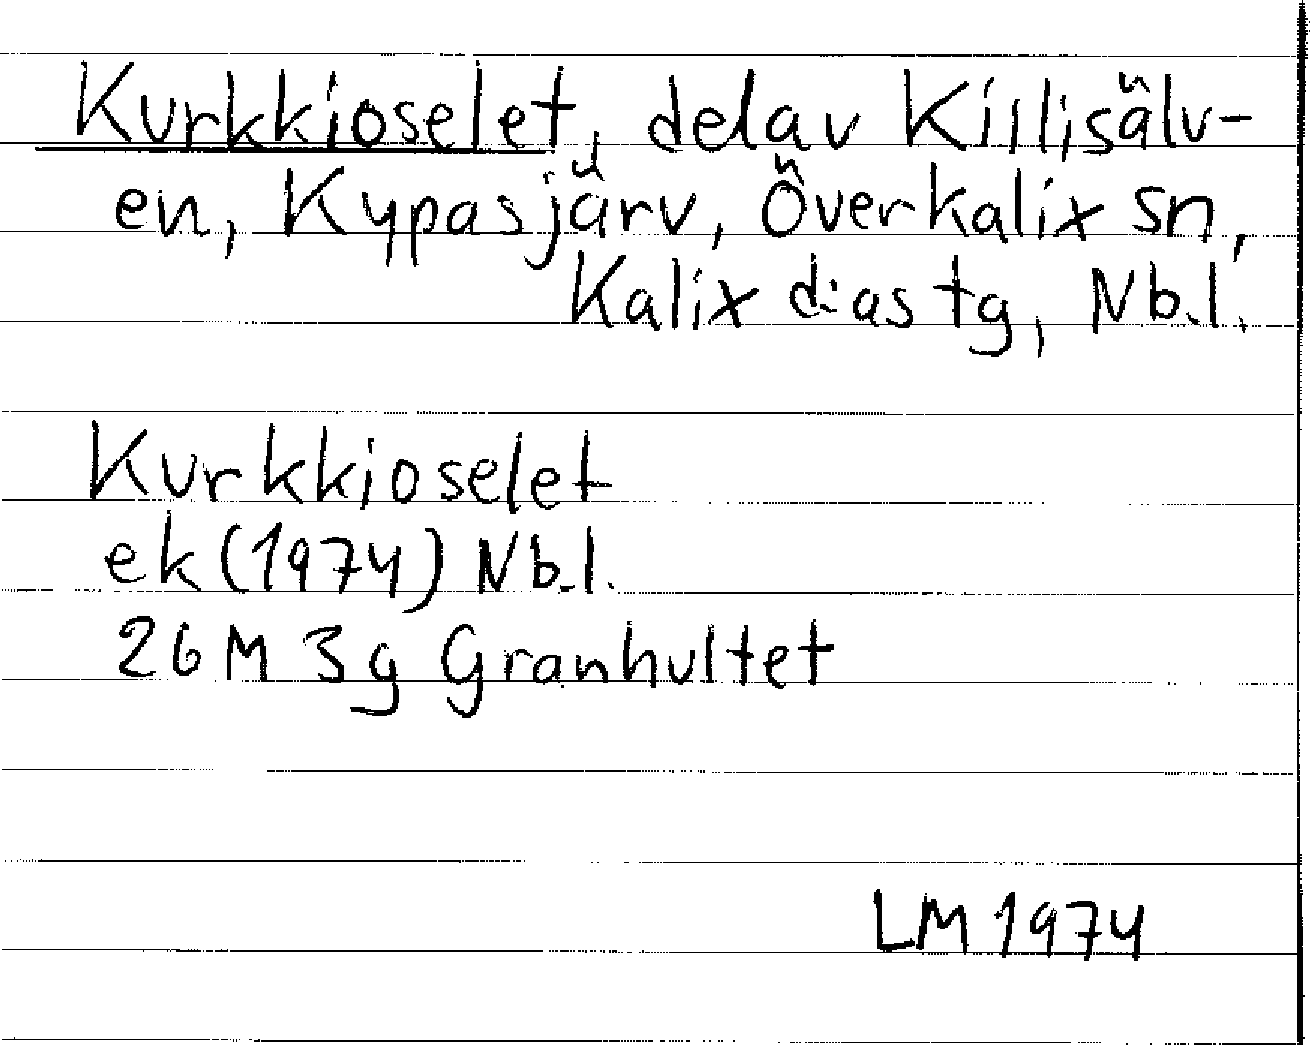 Kurkkioselet, del av Killisälv-
en, Kypasjärv, Överkalix sn,
Kalix d:as tg, Nb.l.
Kurkkioselet
ek (1974) Nb.l.
26M 3g Granhultet
LM 1974